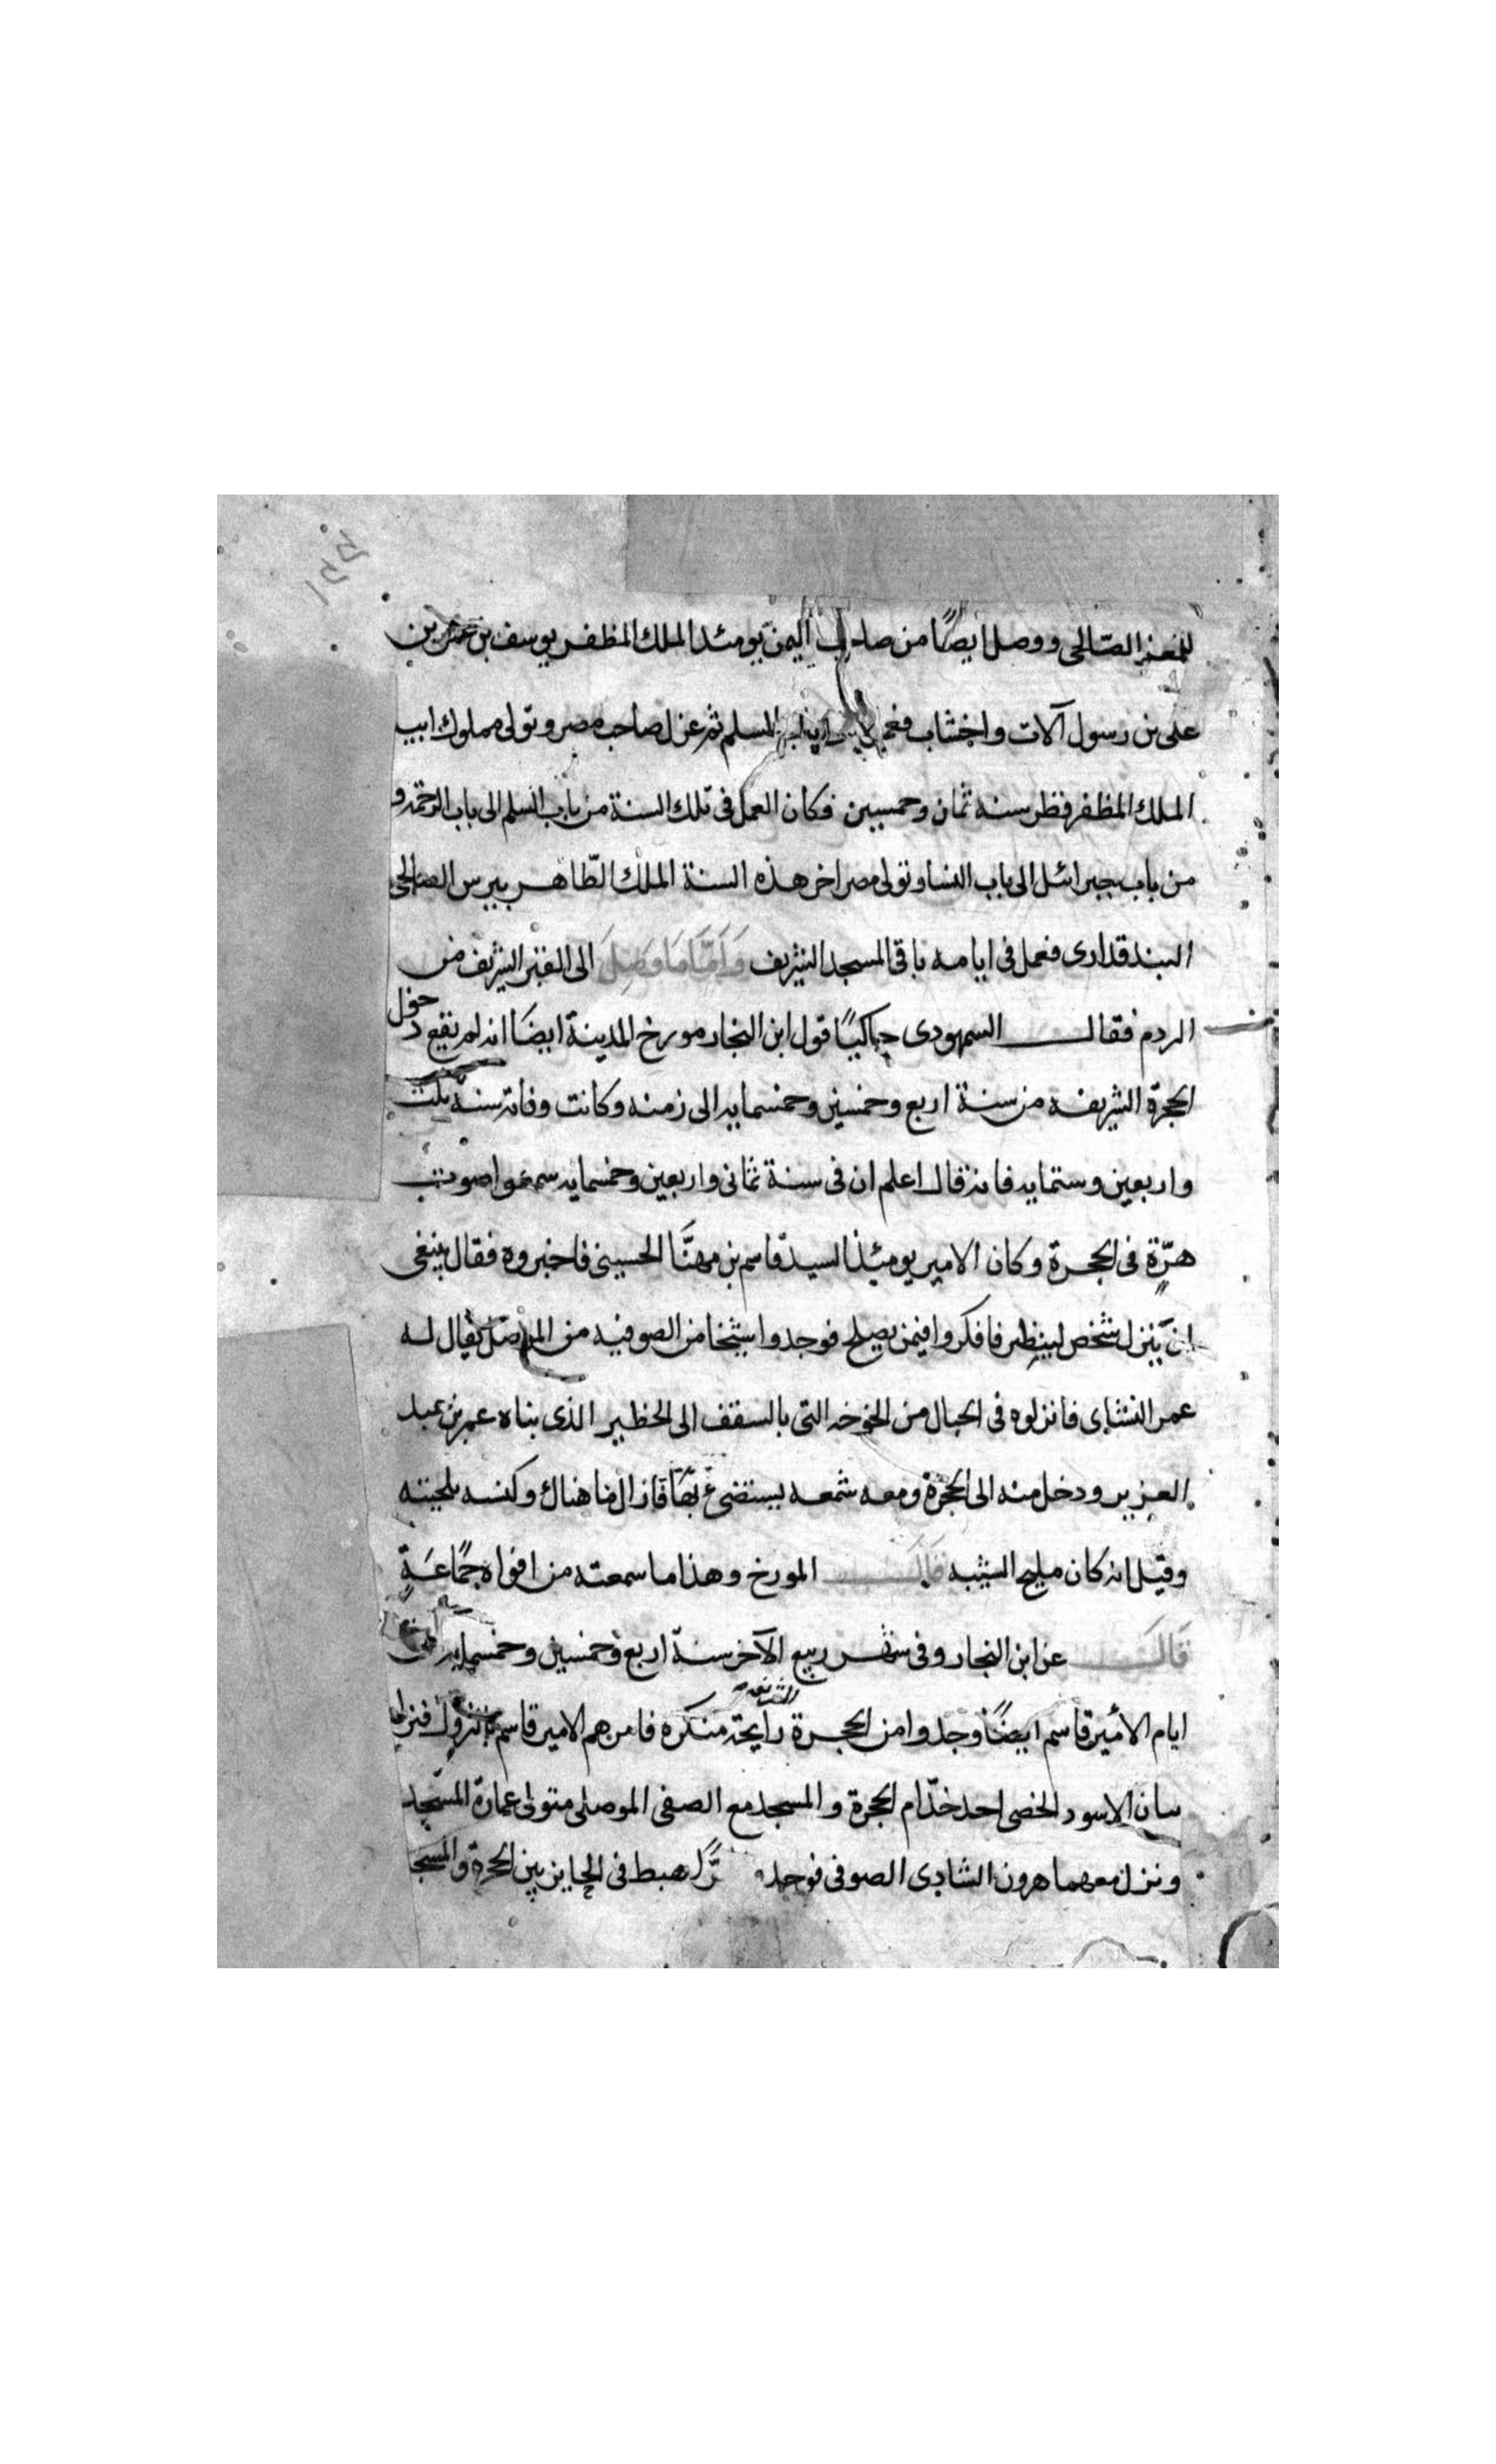 للمعز الصّالحى ووصل ايضًا من صاحب اليمن يومئد الملك المظفر يوسف بن عمر بن
على بن رسول آلات واخشاب فعمل الى باب السلم ثم عزل صاحب مصر وتولى مملوك ابيب
الملك المظفر قطز سنه ثمان وخمسين فكان العمل فى تلك السنة من باب السلم الى باب الرحمة و
من باب جبرائل الى باب النسا وتولى مصر اخر هذه السنة الملك الظّاهر بيبرس الصالحى
البندقدارى فعمل فى ايامه باقى المسجد الشريف وَاَمَّا مَا وَصَلَ الى القبر الشريف من
الردم فقال السمهودى حاكيًا قول ابن النجار مورخ المدينة ايضًا انه لم يقع دخول
الحجرة الشريفه من سنة اربع وخمسين وخمسمايه الى زمنه وكانت وفاته سنة ثلث
واربعين وستمايه فانه قال اعلم ان فى سنة ثمانى واربعين وخمسمايه سمعوا صوت
هرّة فى الحجرة وكان الامير يومئذ السيد قاسم بن مهنَّا الحسينى فاخبروه فقال ينبغى
ان يَنزل شخص لينظر فافكروا فيمن يصلح فوجدوا شيخا من الصوفيه من الموصل يقال له
عمر النشاى فانزلوه فى الحبال من الخوخه التى بالسقف الى الحظير الذى بناه عمر بن عبد
العزيز ودخل منه الى الحجرة ومعه شمعه يستضىء بها فازال ما هناك وكنسه بلحيته
وقيل انه كان مليح الشيبه قَالَ المورخ وهذا ما سمعته من افواه جمَاعَةٍ
قَالَ عن ابن النجار وفى شهر ربيع الآخر سنة اربع وخمسين وخمسمايه فى
ايام الأمير قاسم ايضًا وجدوا من الحجرة الشريفه رايحة منكره فامرهم الامير قاسم بالنزول فنزل
بيان الاسود الخصى احد خدّام الحجرة والمسجد مع الصفى الموصلى متولى عمارة المسجد
ونزل معهما هرون الشادى الصوفى فوجد هرًّا هبط فى الحايز بين الحجرة والمسجد